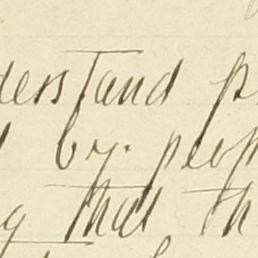 derstand p
by. peop
g that th